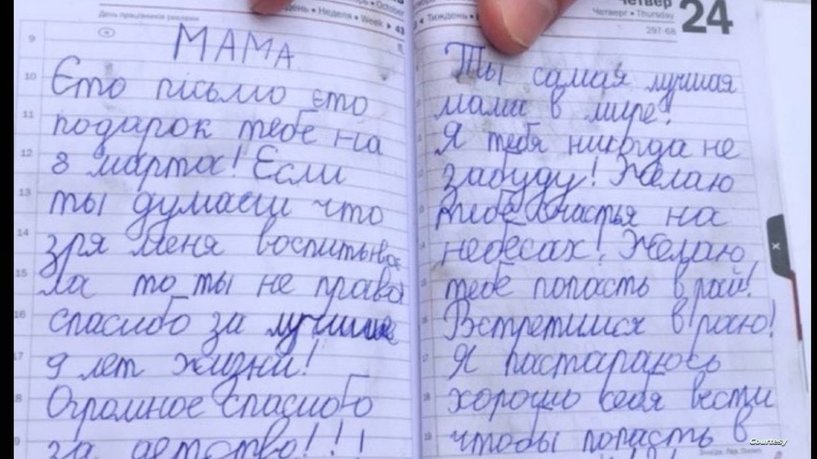 October
День працівників реклами
день • Неделя • Week ▸ 43
МАМА
Єто пісьмо єто
подарок тебе на
8 марта! Если
ты думаеш что
зря меня воспитыва
ла то ты не права
спасибо за лучшие
9 лет жизни!
Огромное спасибо
за детство!!!
9
10
11
12
13
14
15
16
17
18
19
Четвер
24
Четверг • Thursday
Тиждень
297-68
Ты самая лучшая
мама в мире!
Я тебя никогда не
забуду! Желаю
тебе счастья на
небесах! Желаю
тебе попасть в рай!
Встретимся в раю!
Я пастараюсь
хорошо себя вести
чтобы попасть в
X
Courtesy